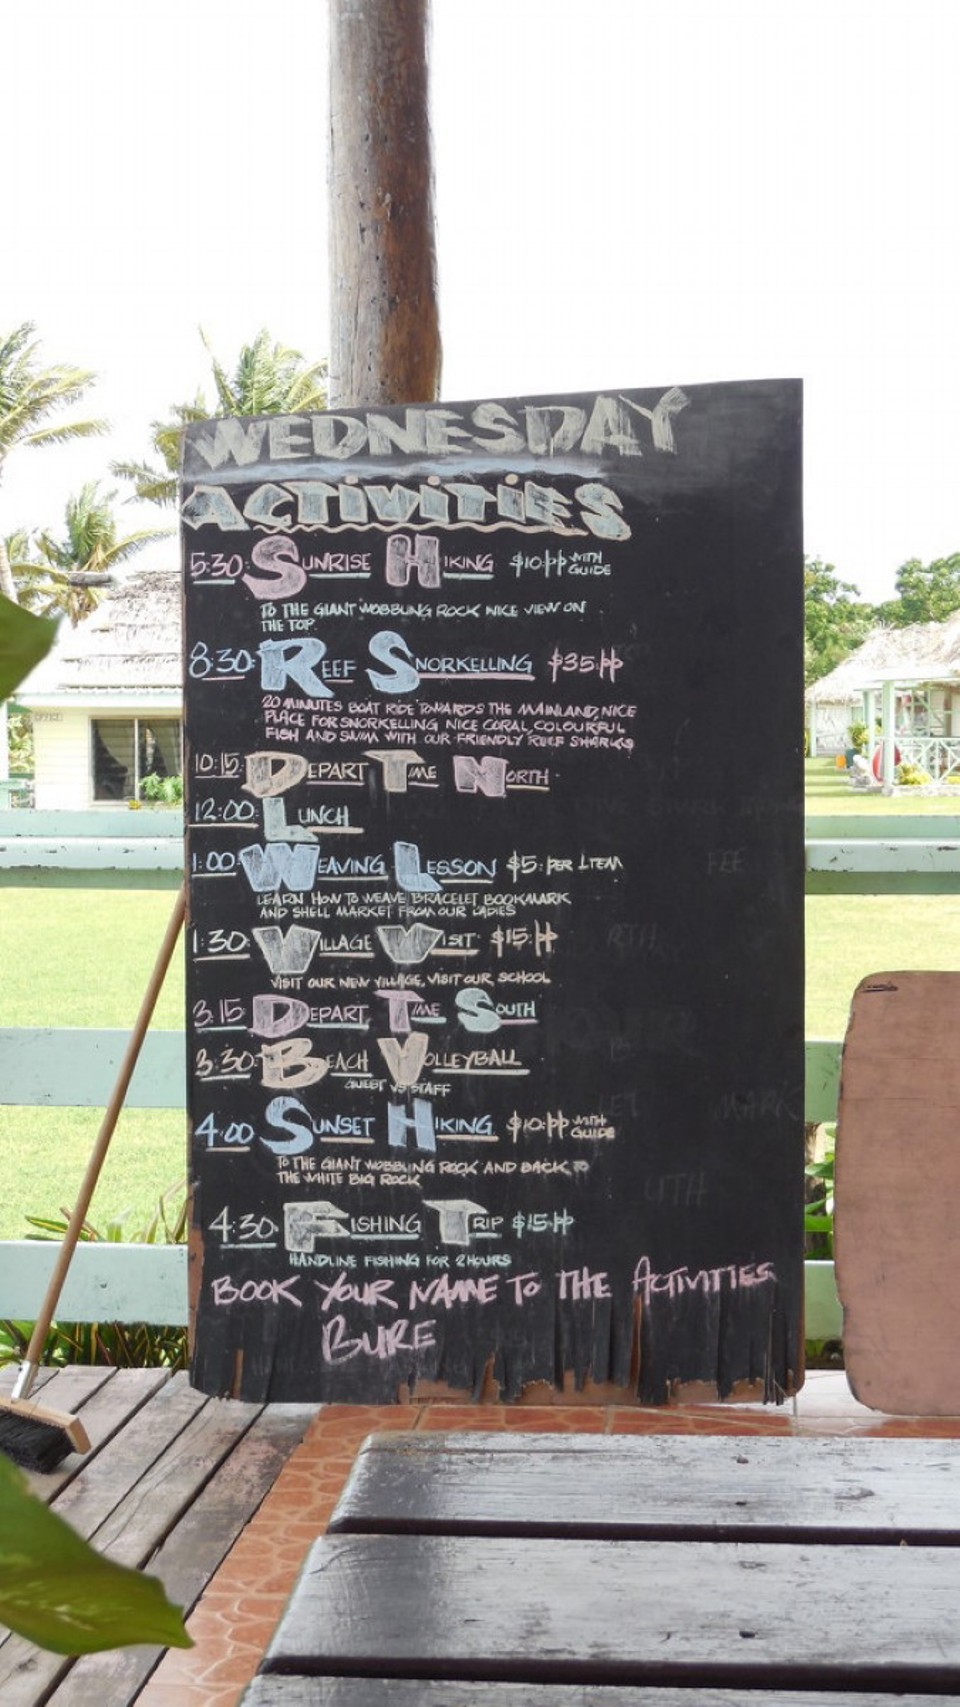 WEDNESDAY
ACTIVITIES
5:30 SUNRISE HIKING $10.PP WITH GUIDE
TO THE GIANT WOBBLING ROCK NICE VIEW ON
THE TOP.
8:30 REEF SNORKELLING $35.PP
20 MINUTES BOAT RIDE TOWARDS THE MAINLAND, NICE
PLACE FOR SNORKELLING NICE CORAL, COLOURFUL
FISH AND SWIM WITH OUR FRIENDLY REEF SHARKS
10:15 DEPART TIME NORTH
12:00 LUNCH
1:00 WEAVING LESSON $5. PER ITEM
LEARN HOW TO WEAVE BRACELET BOOKMARK
AND SHELL MARKET FROM OUR LADIES
1:30 VILLAGE VISIT $15.PP
VISIT OUR NEW VILLAGE, VISIT OUR SCHOOL
3.15 DEPART TIME SOUTH
3:30 BEACH VOLLEYBALL
GUEST VS STAFF
4:00 SUNSET HIKING $10.PP WITH GUIDE
TO THE GIANT WOBBLING ROCK AND BACK TO
THE WHITE BIG ROCK
4:30 FISHING TRIP $15.PP
HANDLINE FISHING FOR 2 HOURS
BOOK YOUR NAME TO THE ACTIVITIES
BURE
OFFICE